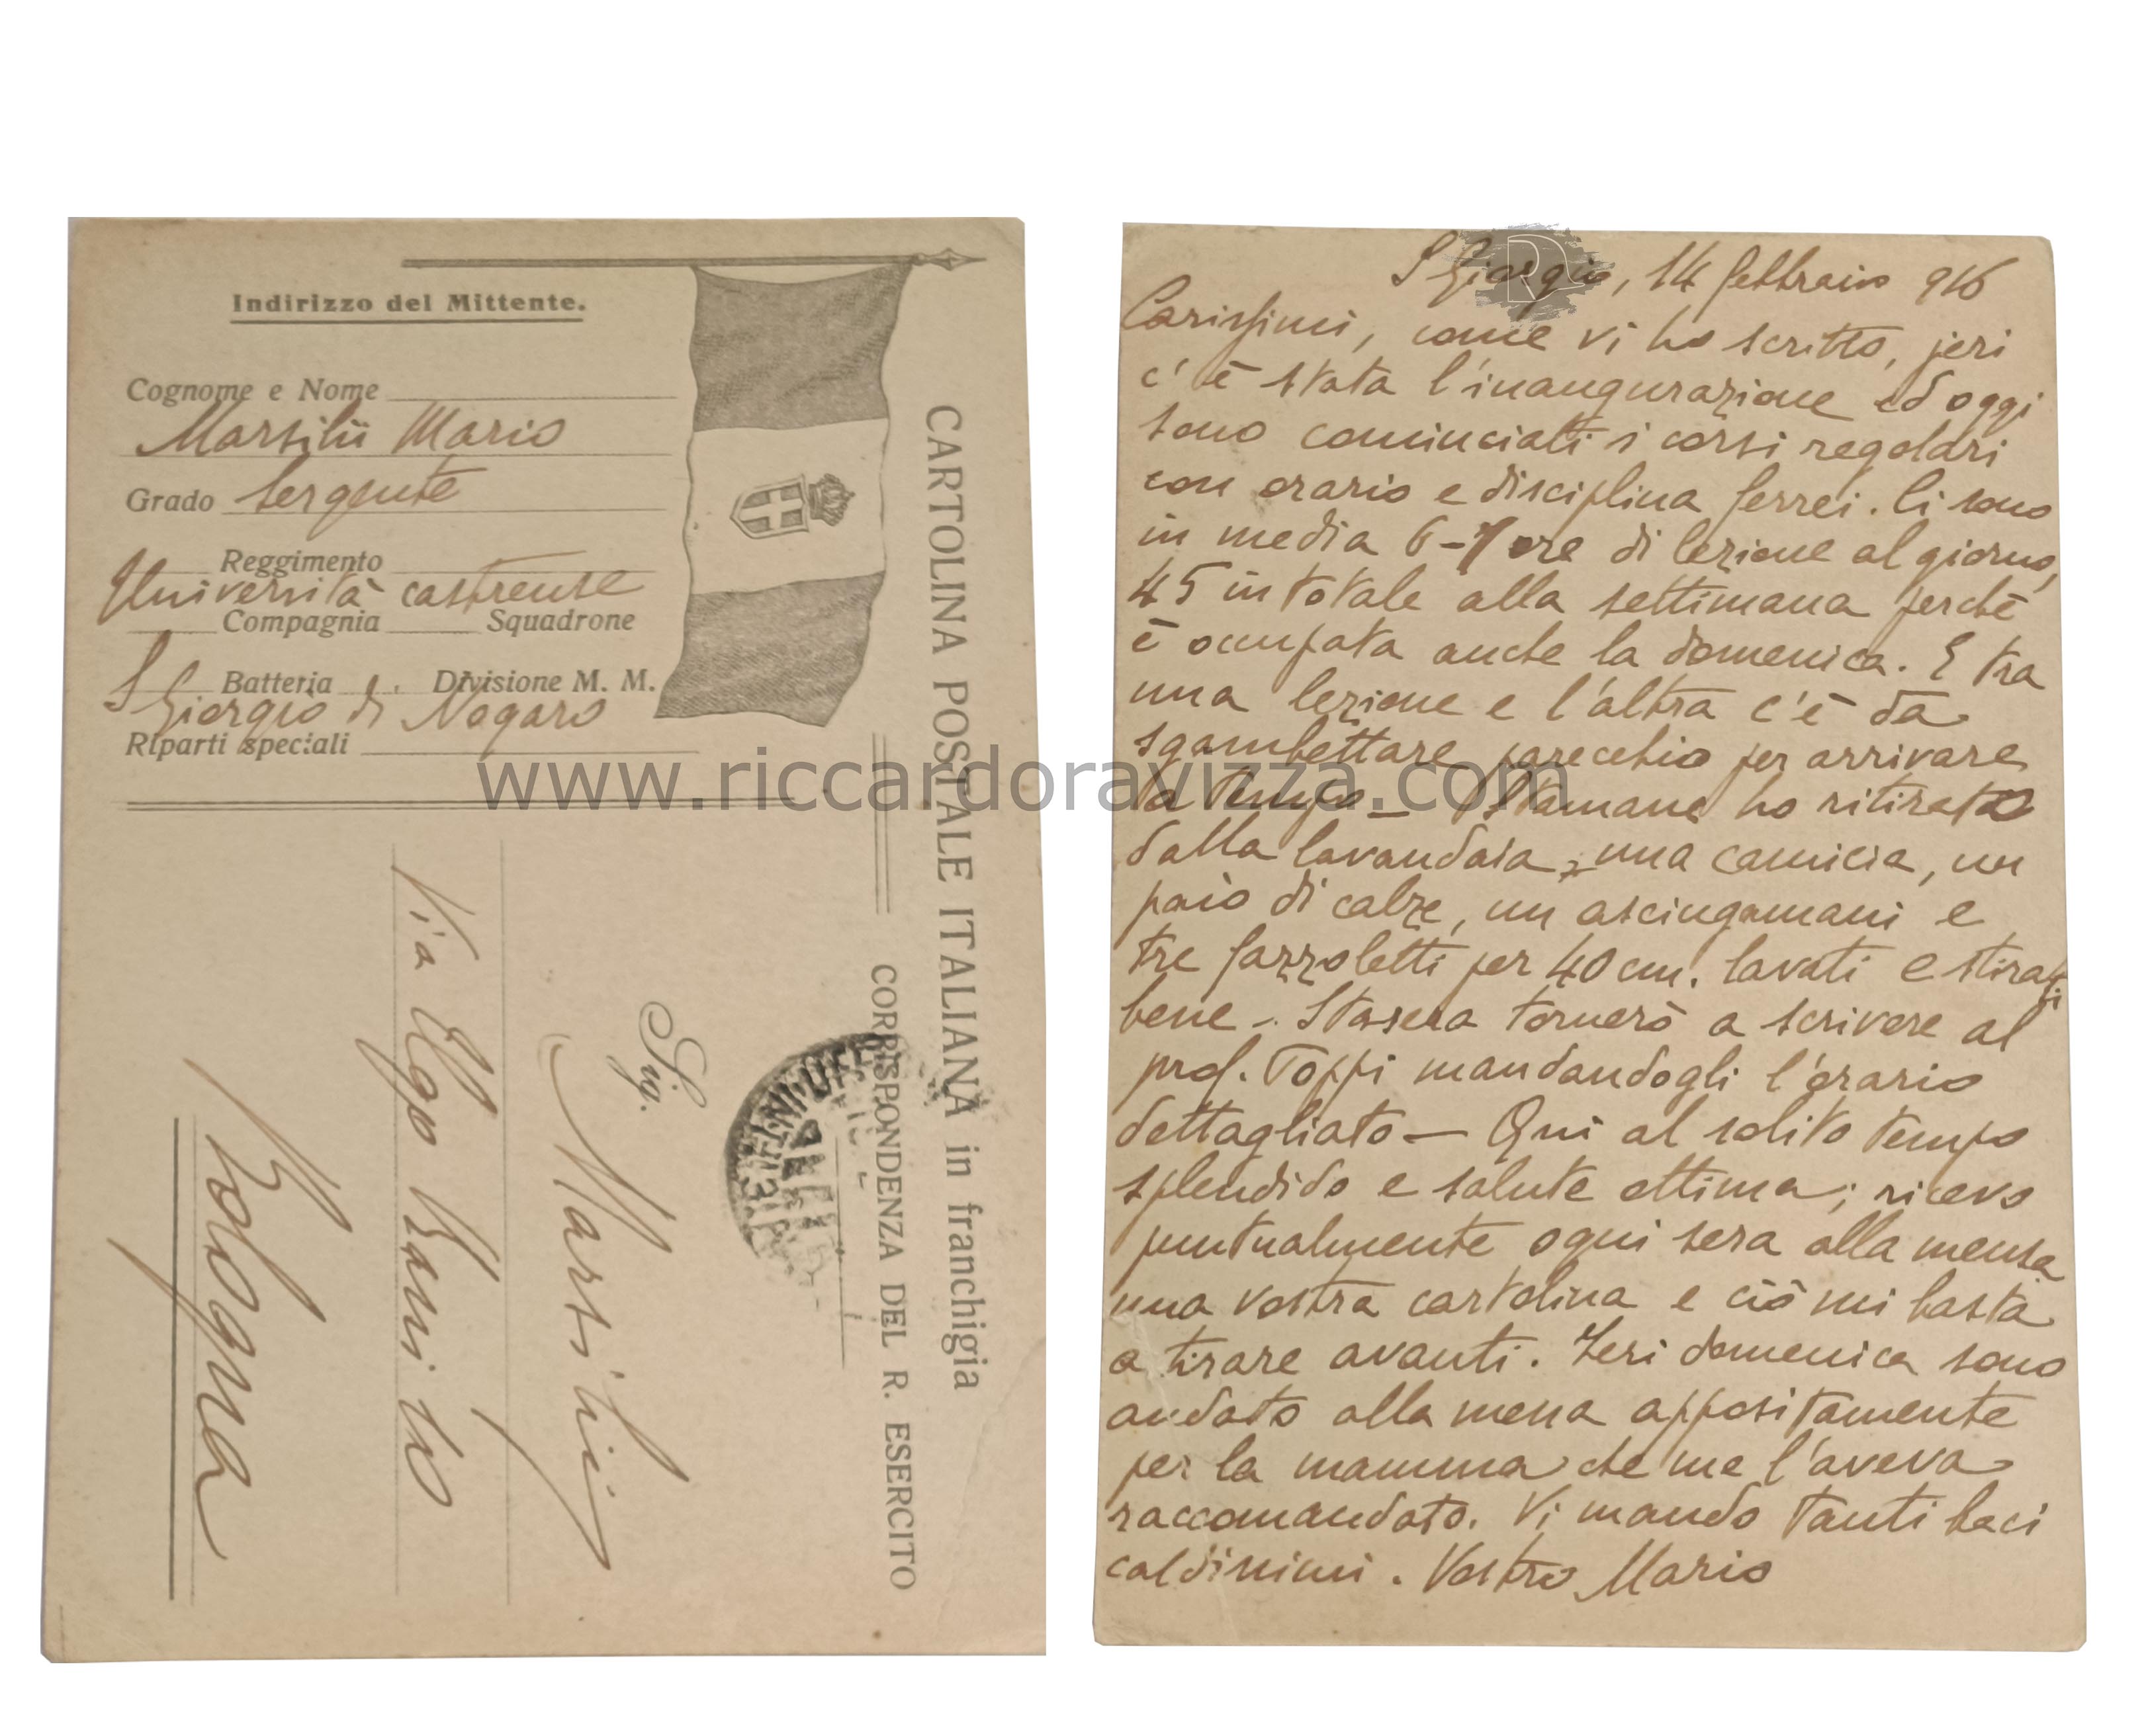 Indirizzo del Mittente.
Cognome e Nome
Marsilii Mario
Grado Sergente
Reggimento
Università castrense
Compagnia Squadrone
Batteria Divisione M. M.
S Giorgio di Nogaro
Riparti speciali
CARTOLINA POSTALE ITALIANA in franchigia
CORRISPONDENZA DEL R. ESERCITO
Sig. Marsilii
Via Ugo Bassi 10
Bologna
www.riccardoravizza.com
S Giorgio, 14 febbraio 916
Carissimi, come vi ho scritto, jeri
c'è stata l'inaugurazione ed oggi
sono cominciati i corsi regolari
con orario e disciplina ferrei. Ci sono
in media 6-7 ore di lezione al giorno,
45 in totale alla settimana perchè
è occupata anche la domenica. E tra
una lezione e l'altra c'è da
sgambettare parecchio per arrivare
a tempo — Stamane ho ritirato
dalla lavandaia, una camicia, un
paio di calze, un asciugamani e
tre fazzoletti per 40 cm. lavati e stirati
bene - Stasera tornerò a scrivere al
prof. Toppi mandandogli l'orario
dettagliato — Qui al solito tempo
splendido e salute ottima; ricevo
puntualmente ogni sera alla mensa
una vostra cartolina e ciò mi basta
a tirare avanti. Ieri domenica sono
andato alla messa appositamente
per la mamma che me l'aveva
raccomandato. Vi mando tanti baci
caldissimi. Vostro Mario